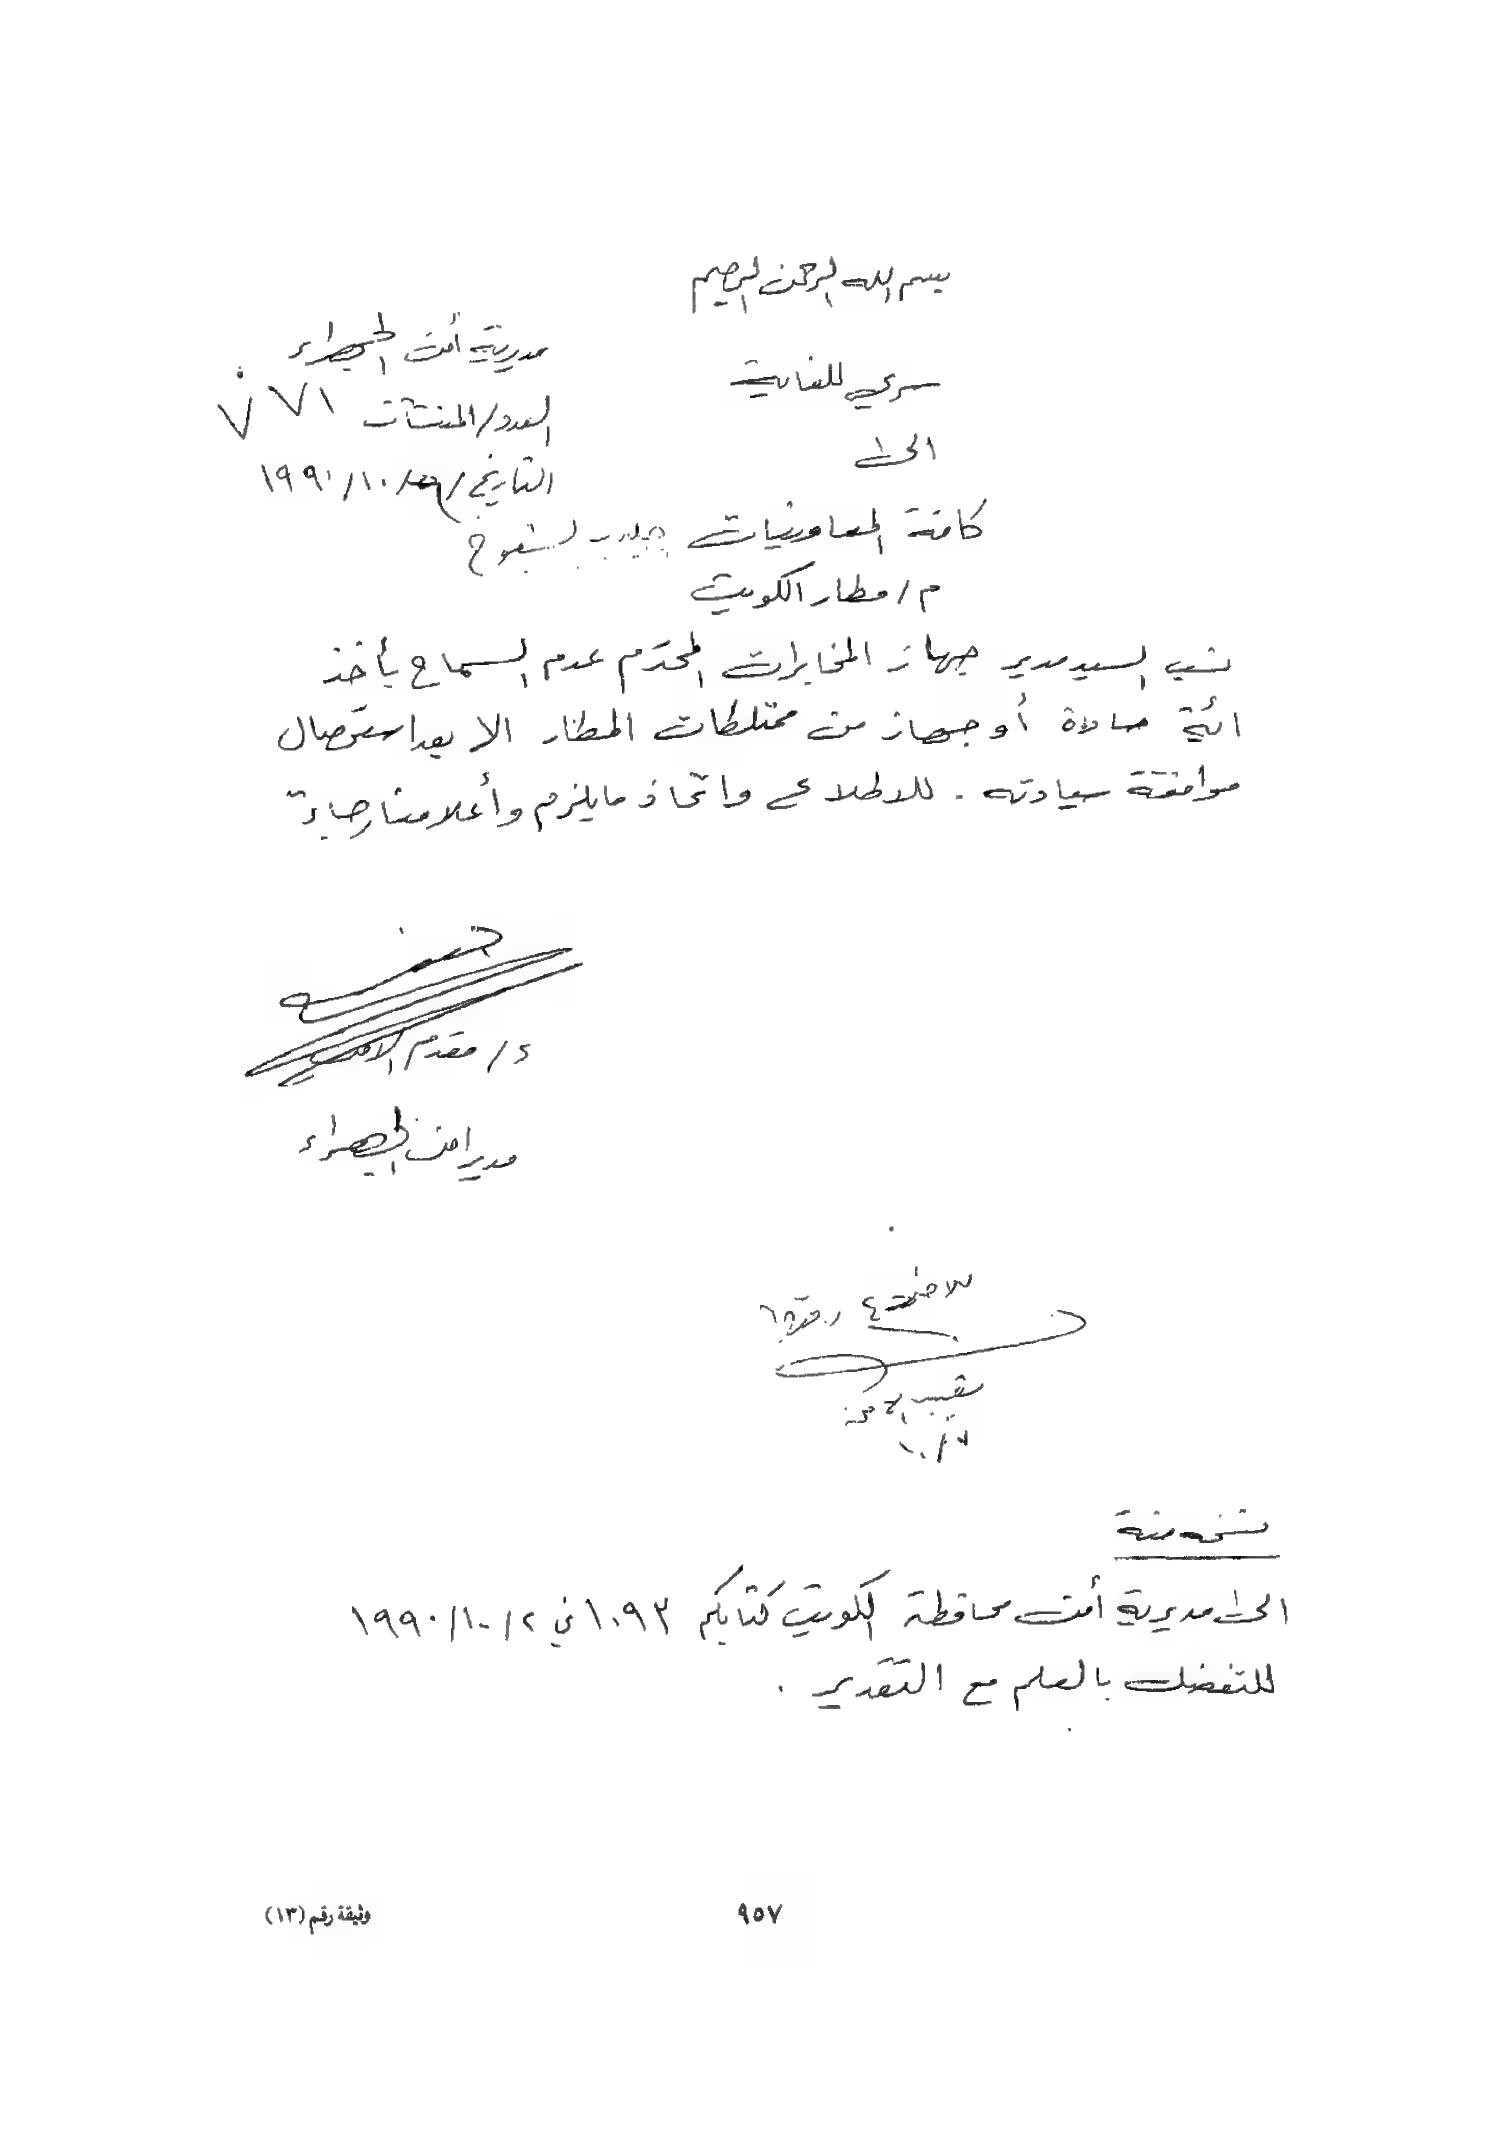 بسم الله الرحمن الرحيم
مديرية أمن الجهراء
سري للغاية
العدد/المنشآت ٧١
الى
التاريخ / /١٠/١٩٩٠
كافة المعاونيات جليب الشيوخ
م/مطار الكويت
نسب السيد مدير جهاز المخابرات المحترم عدم السماح بأخذ
ائية مادة أو جهاز من ممتلكات المطار الا بعد استحصال
موافقة سيادته . للاطلاع واتخاذ مايلزم وأعلامنا رجاءً
ع/مقدم الامن
مدير امن الجهراء
نقيب الامن
١٠/٧
نسخه منه
الى مديرية أمن محافظة الكويت كتابكم ١٠٩٣ في ٢/١٠/١٩٩٠
للتفضل بالعلم مع التقدير .
٩٥٧
وثيقة رقم (١٣)